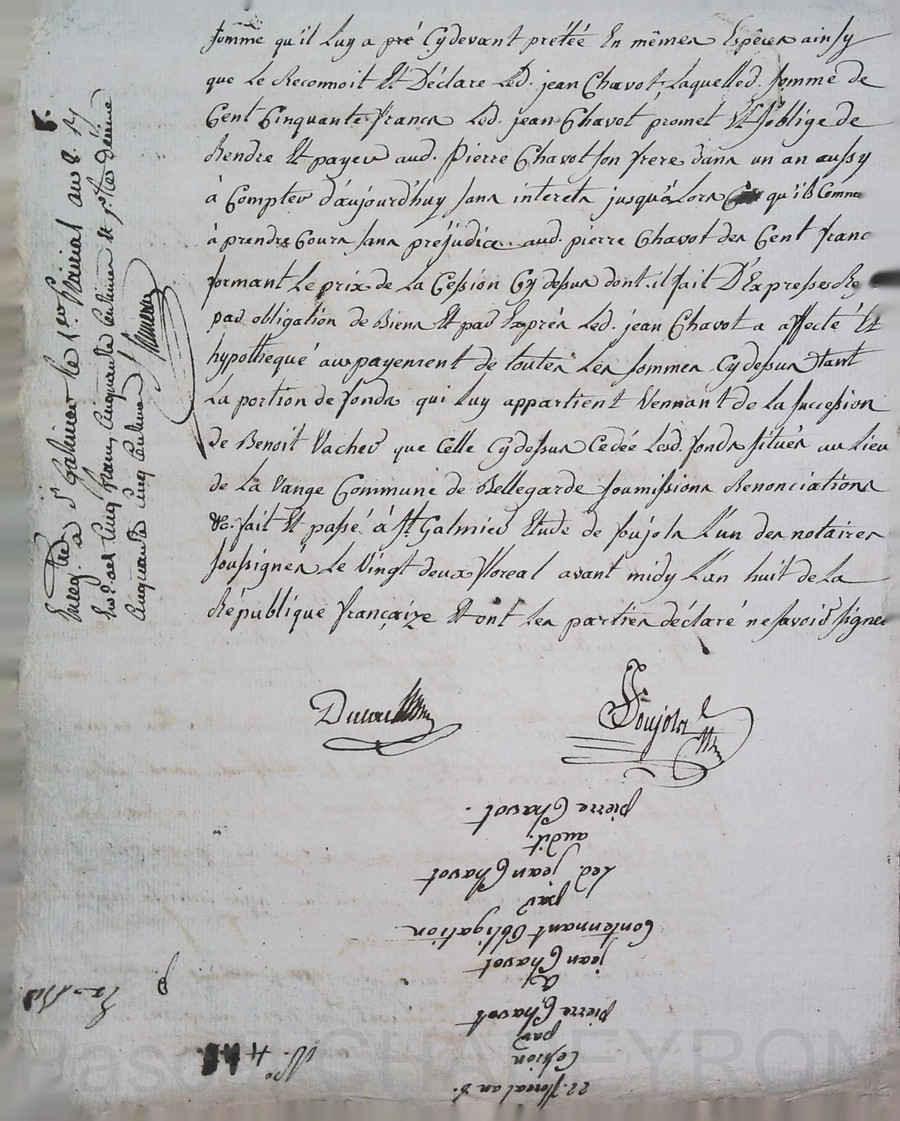 somme qu'il luy a pré cydevant prétée En mêmes Espêces ainsy
que Le Reconnoit Et Déclare Led. jean Chavot, Laquelled. somme de
Cent Cinquante francs Led. jean Chavot promet Et soblige de
Rendre Et payer aud. Pierre Chavot son frere dans un an aussy
à Compter d'aujourd'huy sans interets jusqu'à Lors qu'ils Comme
à prendre Cours sans préjudice aud. pierre Chavot des Cent franc
formant Le prix de La Cession Cy dessus dont il fait D'Expresses Re
par obligation de Biens Et par Exprés Led. jean Chavot a affecté Et
hypothequé au payement de toutes Les sommes Cydessus tant
La portion de fonds qui Luy appartient Vennant de la succession
de Benoit Vacher que Celle Cydessus Cedée Lesd. fonds situés au Lieu
de La Vange Commune de Bellegarde soumissions Renonciations
&c. fait Et passé à St. Galmier Etude de Soujols L'un des notaires
soussignés Le Vingt deux floreal avant midy L'an huit de La
République française Et ont Les parties déclaré ne savoir signer
Soujols
Enreg.tré à St galmier le 1er Prairial an 8. R
cinquante cinq centimes
pierre Chavot.
audit
Led. jean Chavot
par
Contennant Obligation
jean Chavot
à
pierre Chavot
par
Cession
22. floreal an 8.
N.o
Pascal CHALEYRON